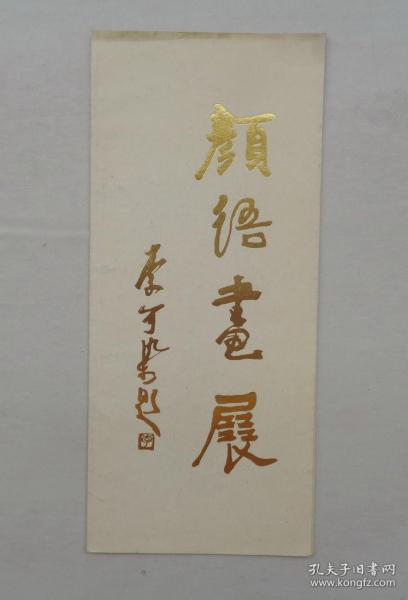 顏語畫展
李可染題
孔夫子旧书网
www.kongfz.com